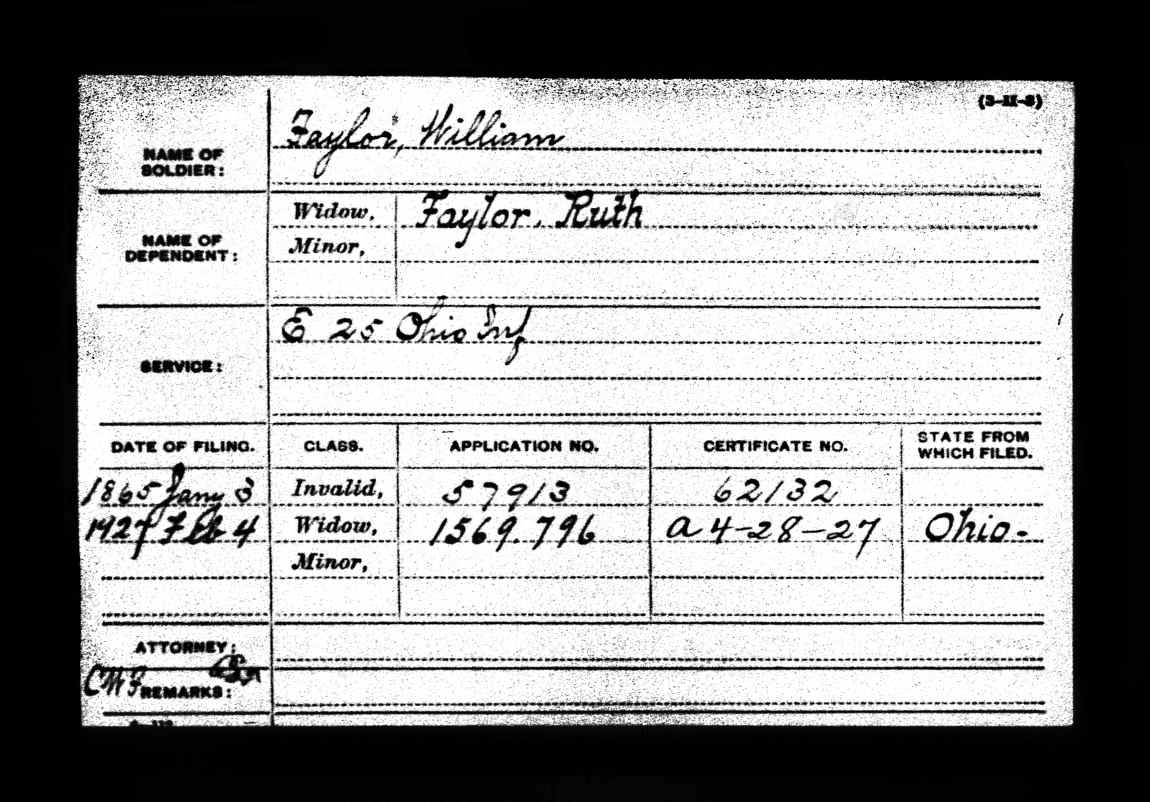 (3-II-3)
NAME OF SOLDIER: Taylor, William
NAME OF DEPENDENT: Widow, Taylor, Ruth
Minor,
SERVICE: E 25 Ohio Inf
DATE OF FILING. CLASS. APPLICATION NO. CERTIFICATE NO. STATE FROM WHICH FILED.
1865 Jany 3 Invalid, 57913 62132
1927 Feb 4 Widow, 1569.796 a 4-28-27 Ohio.
Minor,
ATTORNEY:
REMARKS: